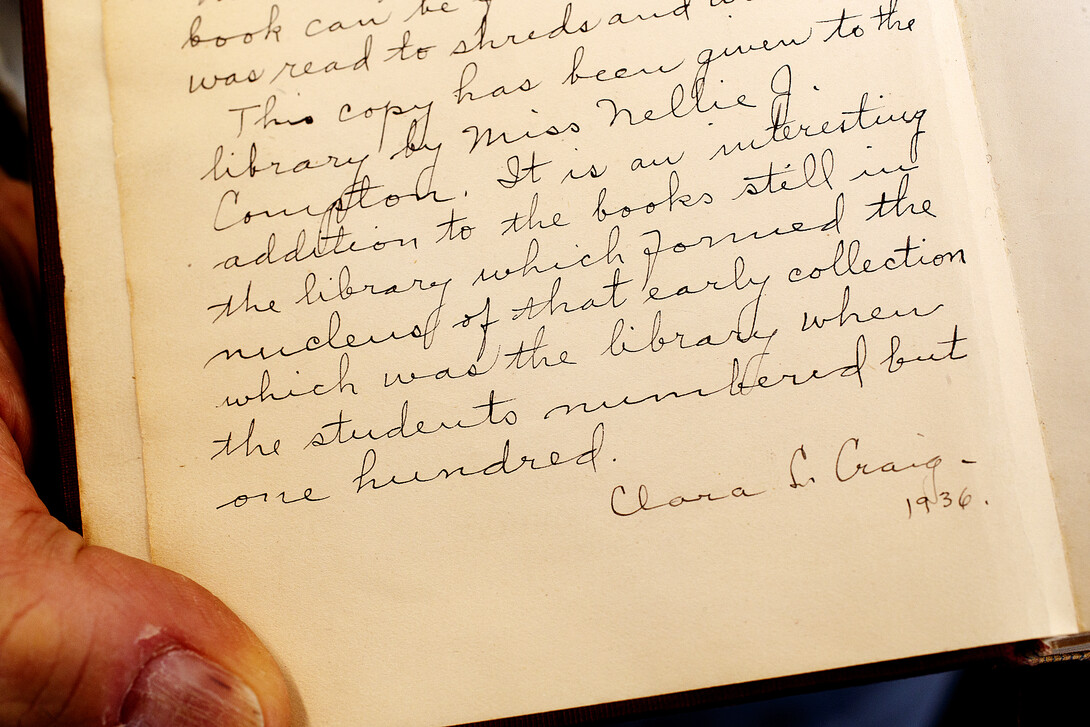 book can be
was read to shreds and
This copy has been given to the
library by Miss Nellie J.
Compton. It is an interesting
addition to the books still in
the library which formed the
nucleus of that early collection
which was the library when
the students numbered but
one hundred.
Clara L. Craig -
1936.